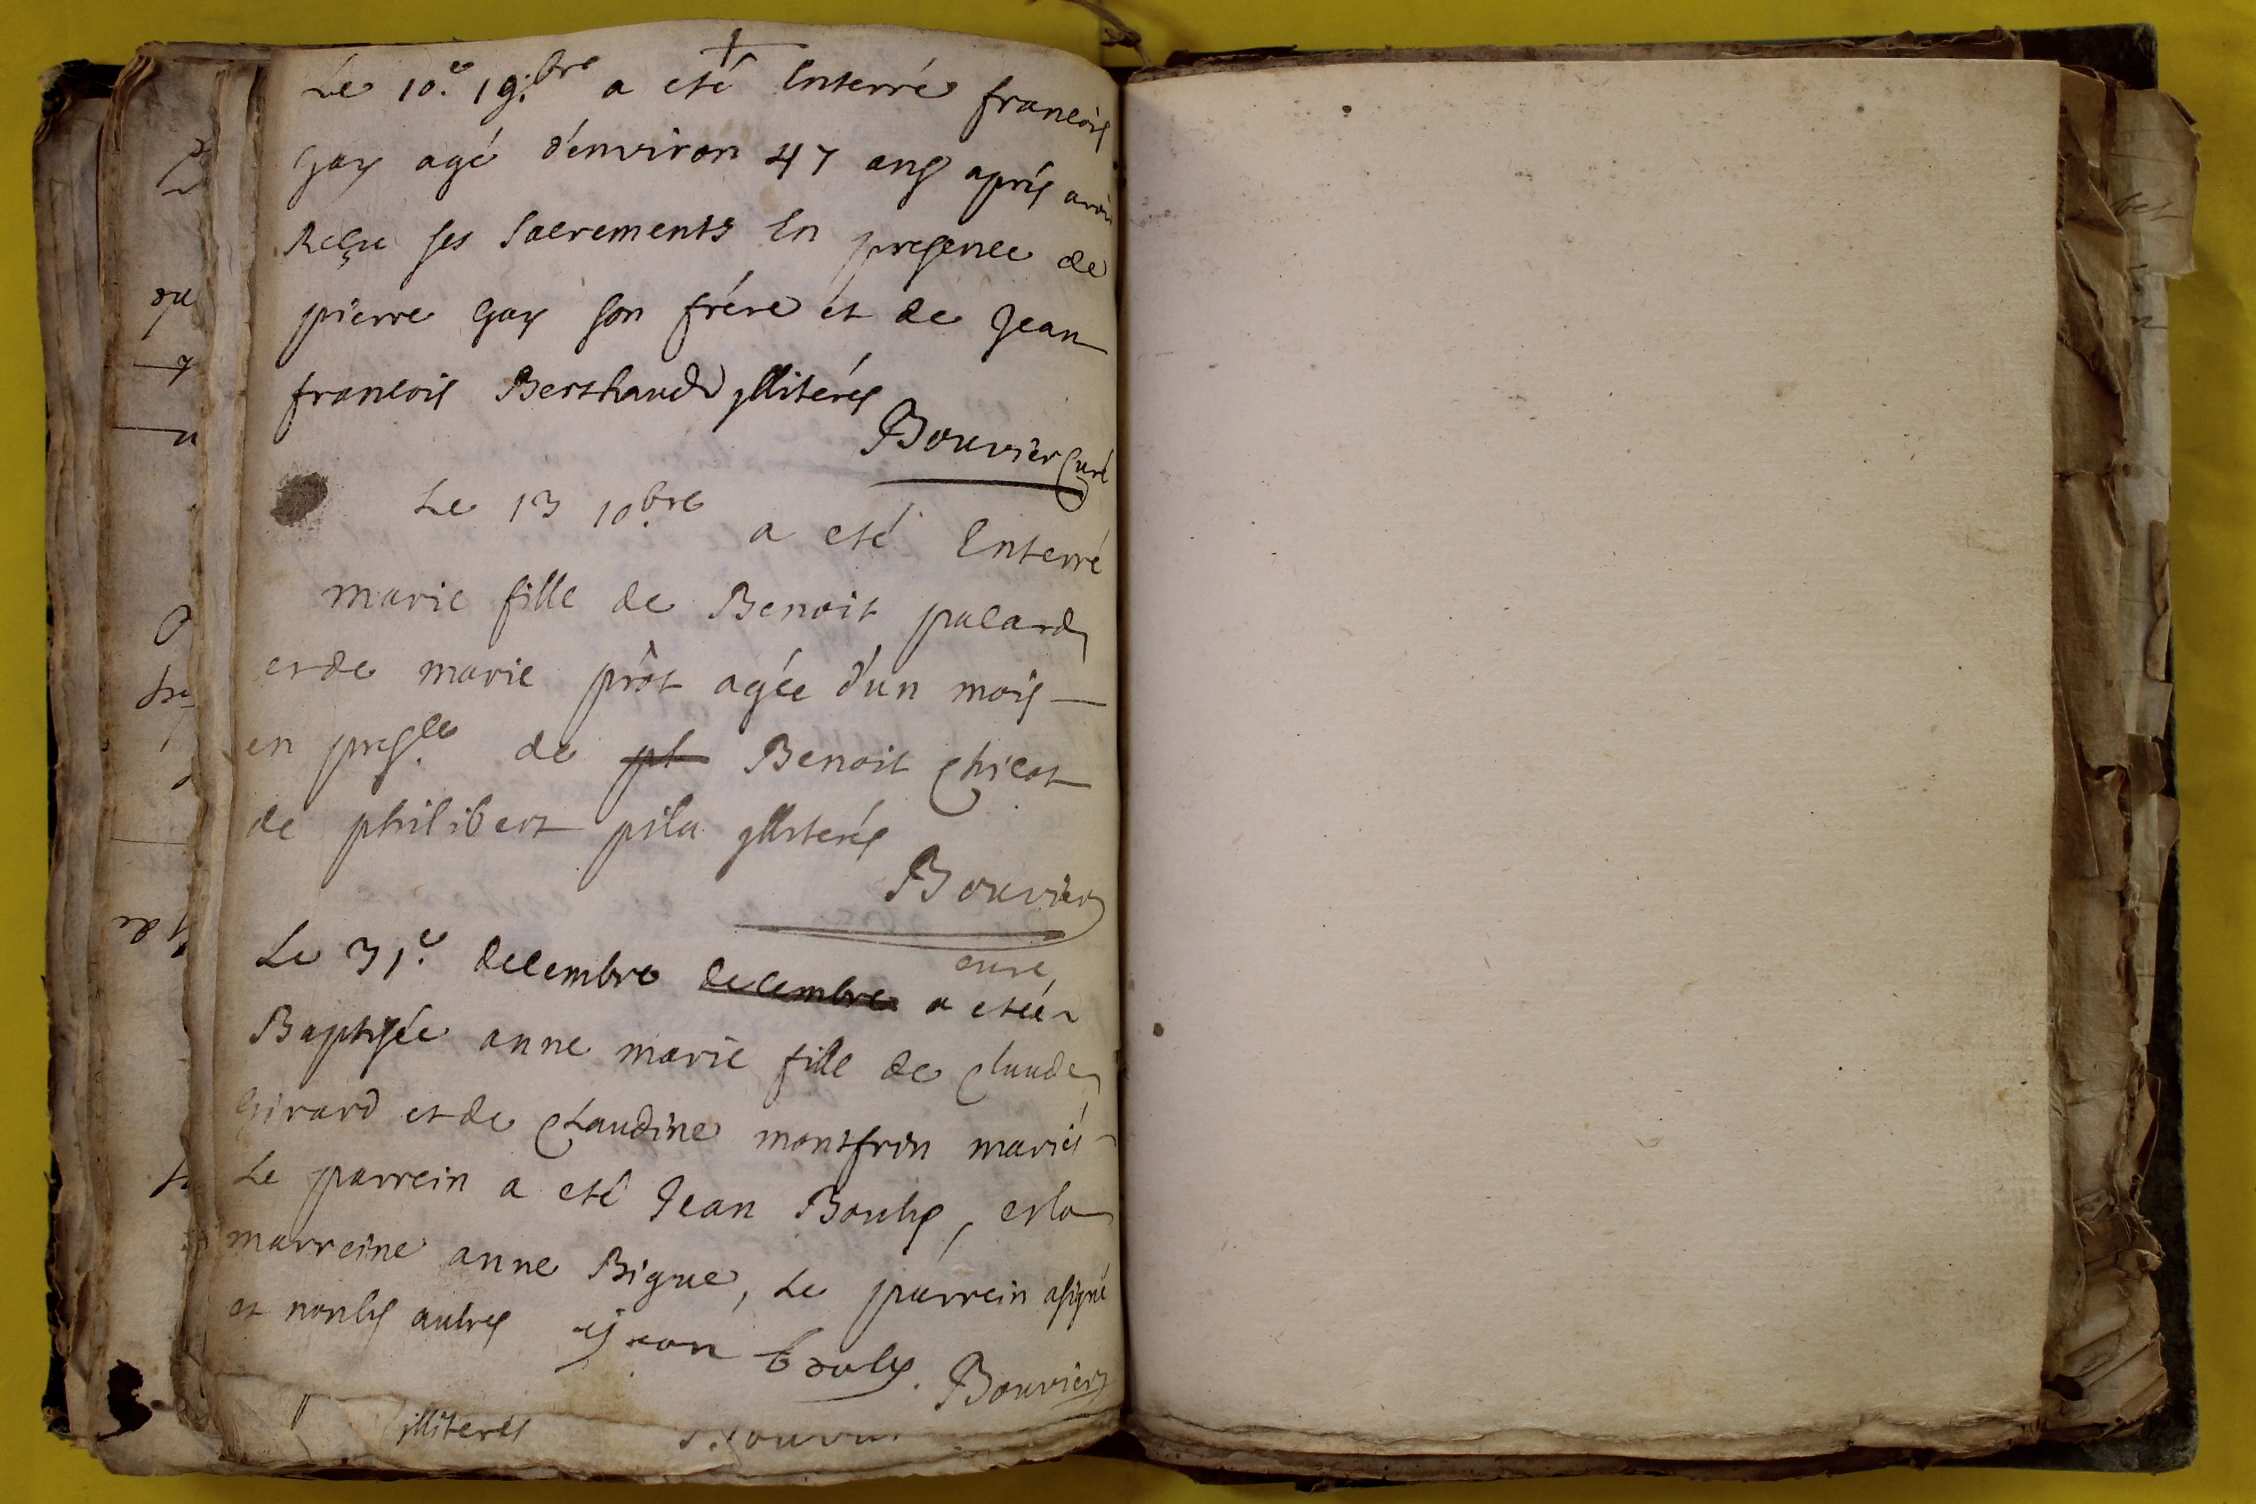 Le 10.e 19.bre a eté Enterré francois
Gay agé d'environ 47 ans aprés avoir
Reçu ses Sacrements En presence de
pierre Gay son frére et de Jean
francois Berthaud illiterés
Bouvier Curé
Le 13 10.bre a eté Enterré
marie fille de Benoit palard
et de marie prôt agée d'un mois
en pres.ce de ph Benoit Chicot
de philibert pila illiterés
Bouvier
curé
Le 31.e decembre decembre a eteé
Baptisée anne marie fille de Claude
Girard et de Claudine montfron mariés
Le parrein a eté Jean Boulis, et la
marreine anne Bigue, Le parrein a signé
et non les autres jean boulis. Bouvier
illiterés